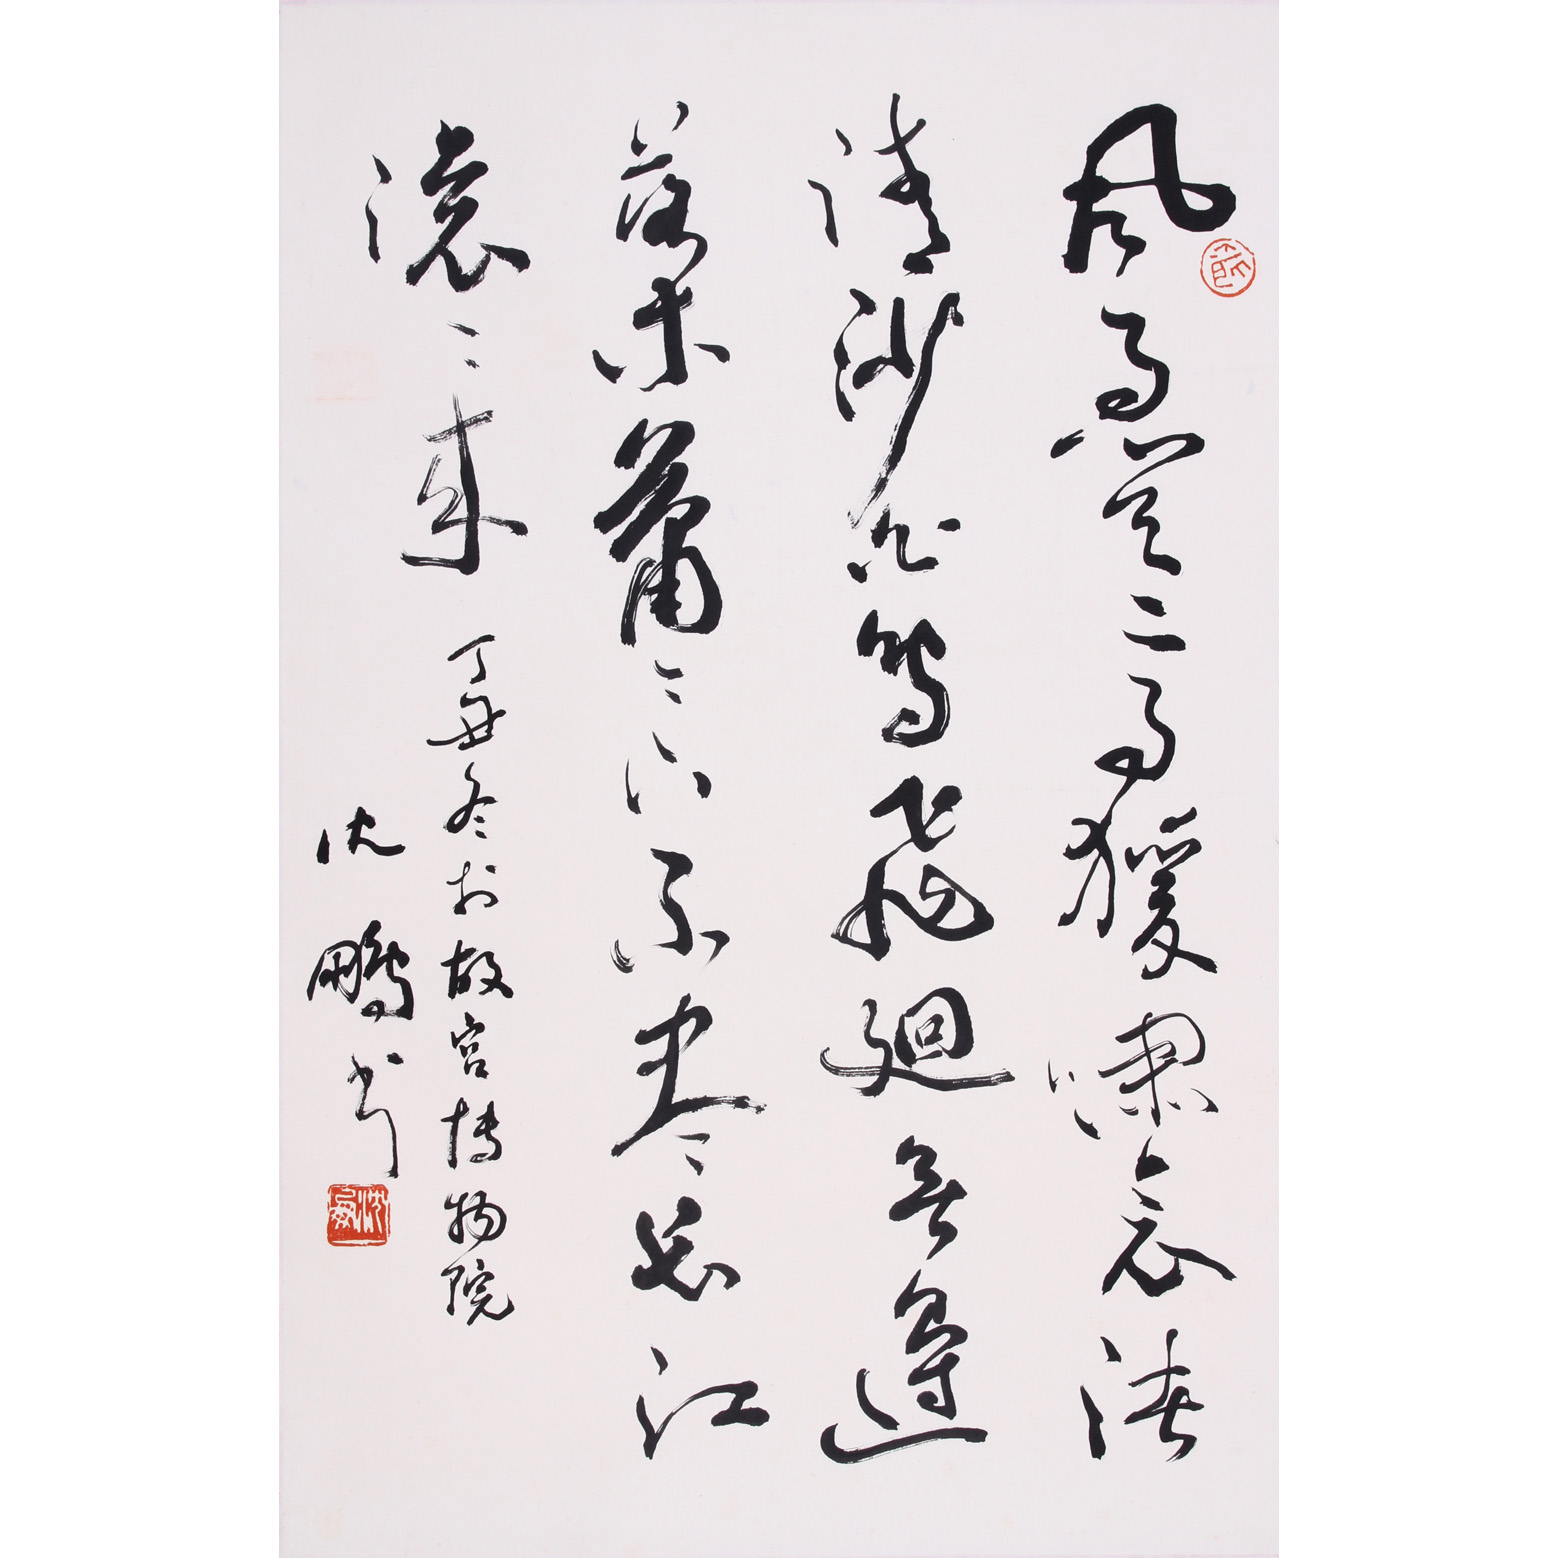 風急天高猨嘯哀渚
清沙白鳥飛迴無邊
落木蕭〻下不盡長江
滾〻來 丁丑冬於故宮博物院
沈鵬書